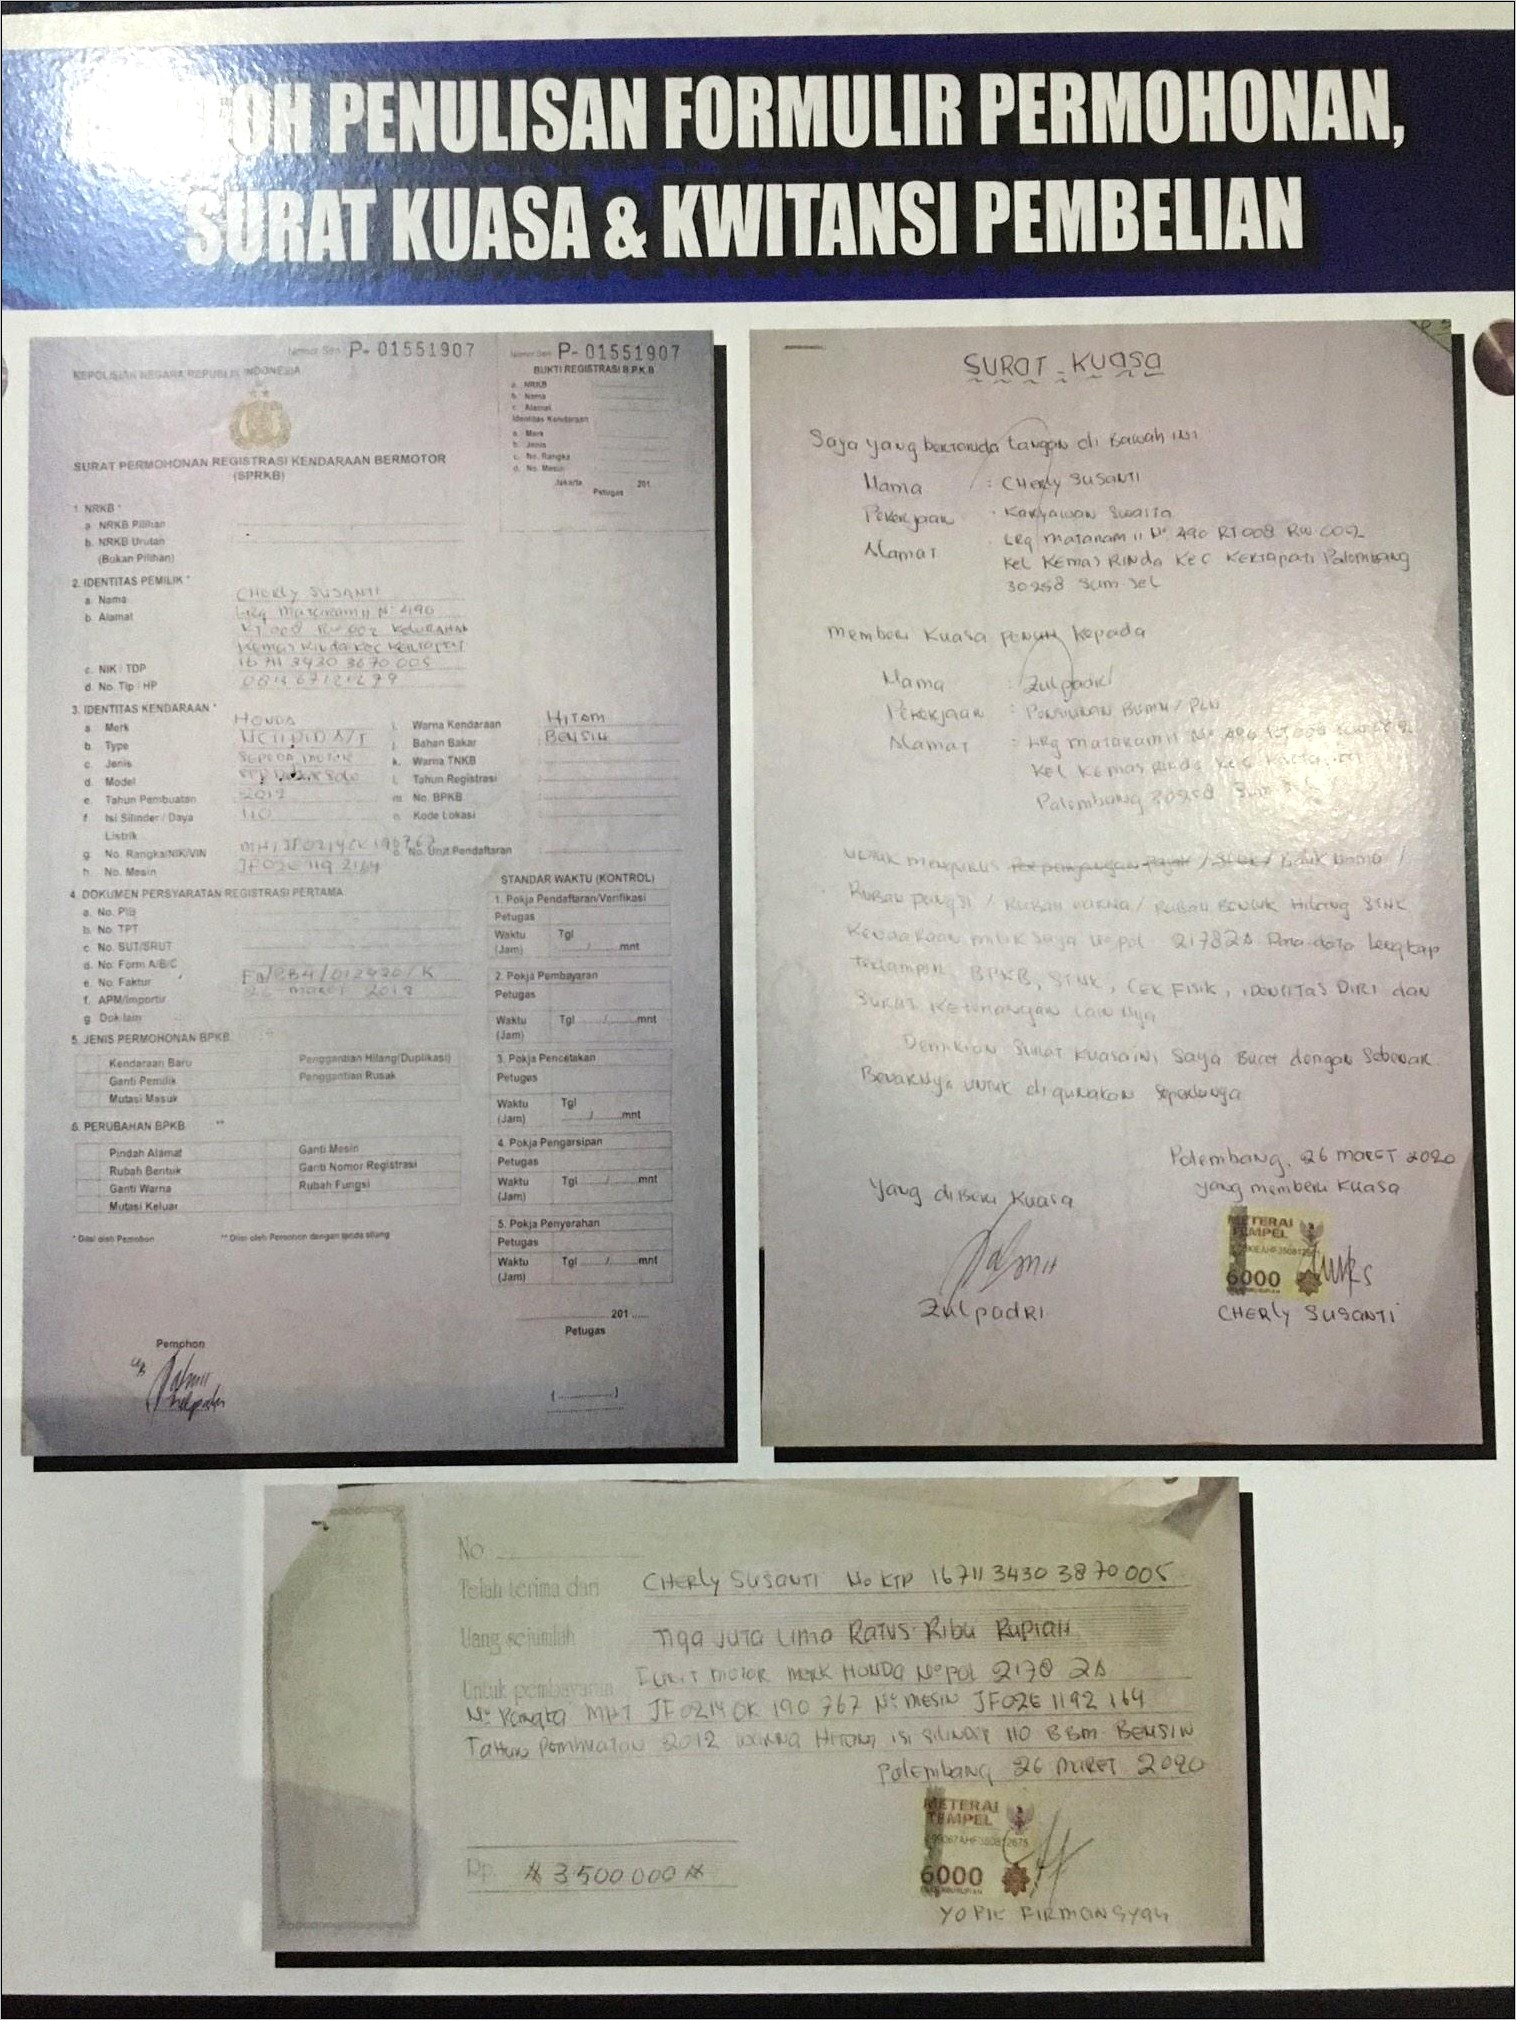 TOH PENULISAN FORMULIR PERMOHONAN,
SURAT KUASA & KWITANSI PEMBELIAN
Nomor Seri P- 01551907
KEPOLISIAN NEGARA REPUBLIK INDONESIA
SURAT PERMOHONAN REGISTRASI KENDARAAN BERMOTOR
(SPRKB)
Nomor Seri P- 01551907
BUKTI REGISTRASI B.P.K.B
a. NRKB
b. Nama
c. Alamat
Identitas Kendaraan
a. Merk
b. Jenis
c. No. Rangka
d. No. Mesin
Jakarta 201
Petugas
1. NRKB *
a. NRKB Pilihan
b. NRKB Urutan
(Bukan Pilihan)
2. IDENTITAS PEMILIK *
a. Nama CHERLY SUSANTI
b. Alamat LRg Mataram II No 490
RT 008 RW 002 KELURAHAN
Kemas Rinda Kec Kertapati
c. NIK / TDP
d. No. Tlp / HP
3. IDENTITAS KENDARAAN *
a. Merk HONDA
b. Type
c. Jenis SEPEDA MOTOR
d. Model
e. Tahun Pembuatan
f. Isi Silinder / Daya 110
Listrik
g. No. Rangka/NIK/VIN
h. No. Mesin
i. Warna Kendaraan HITAM
j. Bahan Bakar BENSIN
k. Warna TNKB
l. Tahun Registrasi
m. No. BPKB
n. Kode Lokasi
o. No. Urut Pendaftaran
4. DOKUMEN PERSYARATAN REGISTRASI PERTAMA
a. No. PIB
b. No. TPT
c. No. SUT/SRUT
d. No. Form A/B/C
e. No. Faktur
f. APM/Importir
g. Dok lain
5. JENIS PERMOHONAN BPKB
Kendaraan Baru Penggantian Hilang(Duplikasi)
Ganti Pemilik Penggantian Rusak
Mutasi Masuk
6. PERUBAHAN BPKB **
Pindah Alamat Ganti Mesin
Rubah Bentuk Ganti Nomor Registrasi
Ganti Warna Rubah Fungsi
Mutasi Keluar
* Diisi oleh Pemohon ** Diisi oleh Pemohon dengan tanda silang
Pemohon
STANDAR WAKTU (KONTROL)
1. Pokja Pendaftaran/Verifikasi
Petugas
Waktu Tgl
(Jam) ....../......mnt
2. Pokja Pembayaran
Petugas
Waktu Tgl ....../......mnt
(Jam)
3. Pokja Pencetakan
Petugas
Waktu Tgl
(Jam) ....../......mnt
4. Pokja Pengarsipan
Petugas
Waktu Tgl ....../......mnt
(Jam)
5. Pokja Penyerahan
Petugas
Waktu Tgl ....../......mnt
(Jam)
201 .....
Petugas
SURAT KUASA
Saya yang bertanda tangan di Bawah INI
Nama : CHERLY SUSANTI
Pekerjaan : Karyawan Swasta
Alamat : LRg mataram II No 490 RT 008 RW 002
Kel Kemas RINDA Kec Kertapati Palembang
30258 Sum Sel
memberi Kuasa penuh kepada
Nama : Zulpadri
Pekerjaan : Pensiunan BUMN / PLN
Alamat : LRg mataram II No
Kel Kemas Rinda Kec
Palembang 30258 Sum Sel
untuk mengurus / Balik Nama /
Rubah Fungsi / Rubah warna / Rubah Bentuk Hilang STNK
Kendaraan milik saya No pol 2178 ZA Data-data lengkap
Terlampir, BPKB, STNK, CEK FISIK, IDENTITAS DIRI dan
Surat Keterangan Lain Nya
Demikian Surat Kuasa ini Saya Buat dengan Sebenar
Benarnya untuk digunakan Seperlunya
Palembang, 26 MARET 2020
Yang diberi Kuasa yang memberi Kuasa
METERAI
TEMPEL
6000
Zulpadri CHERLY SUSANTI
No
Telah terima dari CHERLY SUSANTI No KTP 16711 3430 3870 005
Uang sejumlah Tiga Juta Lima Ratus Ribu Rupiah
Untuk pembayaran I unit motor merk HONDA No pol 2178 ZA
No Rangka No MESIN JF02E 1192 164
Tahun Pembuatan 2012 warna Hitam isi silinder 110 BBM BENSIN
Palembang 26 MARET 2020
METERAI
TEMPEL
6000
Rp. 3500 000
YOPIE FIRMANSYAH